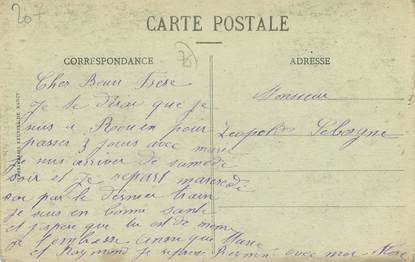 207
CARTE POSTALE
CORRESPONDANCE
ADRESSE
Cher Beau Frere
Je te dirai que je
suis a Rouen pour
passer 3 jours avec
je suis arriver de samedi
soir et je repart mercredi
soir par le dernier train
je suis en bonne sante
et j'espere que tu est de meme
Je t'embrasse ainsi que
et Raymond je avec mon
Monsieur
Leopold